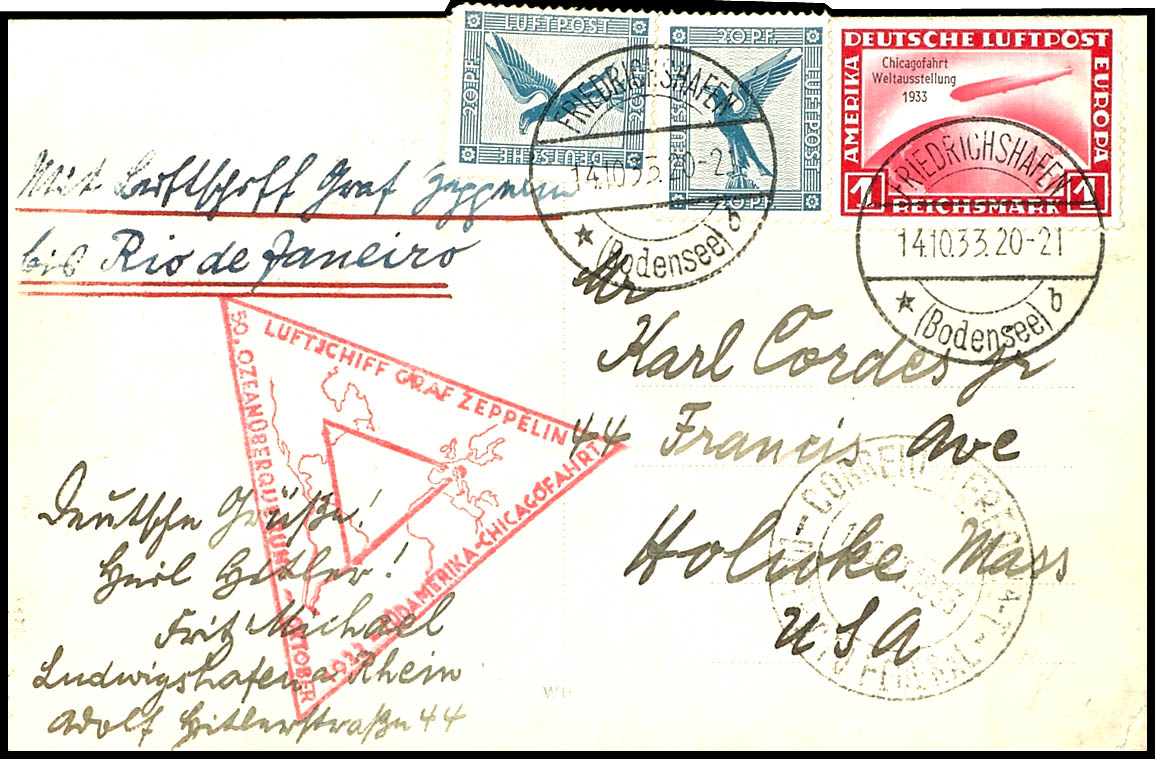 LUFTPOST
20 PF
DEUTSCHE
20 PF.
LUFTPOST
DEUTSCHE
20 PF.
DEUTSCHE LUFTPOST
AMERIKA
EUROPA
Chicagofahrt
Weltausstellung
1933
1 REICHSMARK 1
FRIEDRICHSHAFEN
14.10.33.20-21
(Bodensee) b
FRIEDRICHSHAFEN
14.10.33.20-21
(Bodensee) b
Mit Luftschiff Graf Zeppelin
bis Rio de Janeiro
LUFTSCHIFF GRAF ZEPPELIN
50. OZEANÜBERQUERUNG-OKTOBER
1933 SÜDAMERIKA-CHICAGOFAHRT
Mr
Karl Cordes jr
44 Francis Ave
Holyoke Mass
USA
Deutsche Grüße!
Heil Hitler!
Fritz Michael
Ludwigshafen a. Rhein
Adolf Hitlerstraße 44
FEDERAL